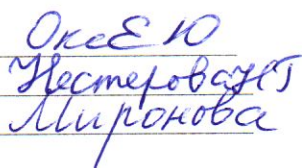 Оксе Е Ю
Нестерова НГ
Миронова